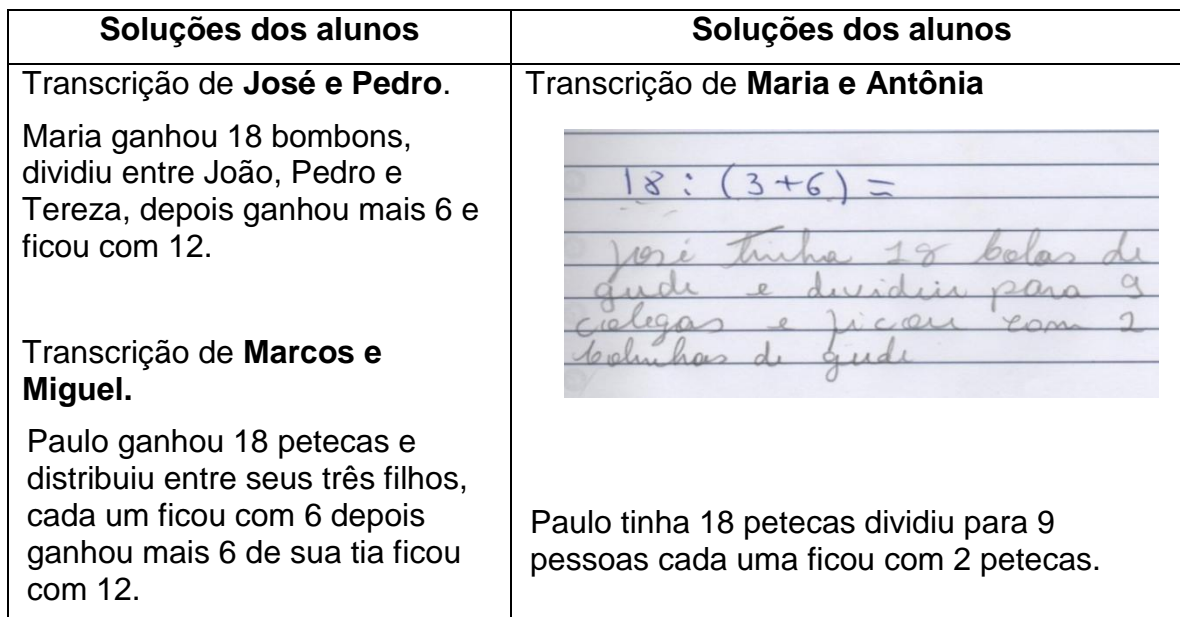 Soluções dos alunos
Transcrição de José e Pedro.
Maria ganhou 18 bombons,
dividiu entre João, Pedro e
Tereza, depois ganhou mais 6 e
ficou com 12.
Transcrição de Marcos e
Miguel.
Paulo ganhou 18 petecas e
distribuiu entre seus três filhos,
cada um ficou com 6 depois
ganhou mais 6 de sua tia ficou
com 12.
Soluções dos alunos
Transcrição de Maria e Antônia
18 : (3+6) =
José tinha 18 bolas de
gude e dividiu para 9
colegas e ficou com 2
bolinhas de gude
Paulo tinha 18 petecas dividiu para 9
pessoas cada uma ficou com 2 petecas.